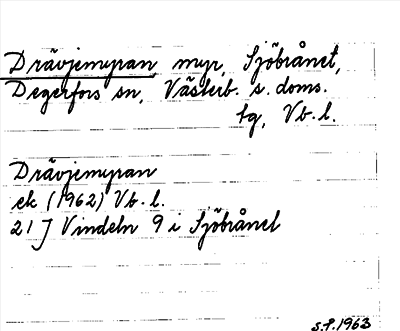 Drävjemyran, myr, Sjöbrånet,
Degerfors sn, Västerb. s. doms.
tg, Vb. l.
Drävjemyran
ek (1962) Vb. l.
21 J Vindeln 9 i Sjöbrånet
S.P.1963